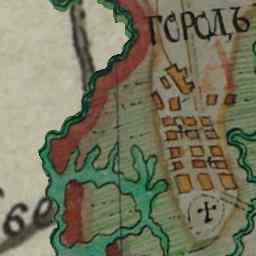 ГОРОДЪ
60